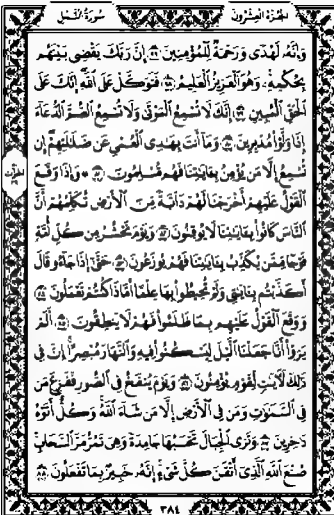 الجزء العشرون
سورة النمل
وَإِنَّهُ لَهُدًى وَرَحْمَةٌ لِّلْمُؤْمِنِينَ ٧٧ إِنَّ رَبَّكَ يَقْضِي بَيْنَهُم
بِحُكْمِهِ وَهُوَ الْعَزِيزُ الْعَلِيمُ ٧٨ فَتَوَكَّلْ عَلَى اللَّهِ إِنَّكَ عَلَى
الْحَقِّ الْمُبِينِ ٧٩ إِنَّكَ لَا تُسْمِعُ الْمَوْتَى وَلَا تُسْمِعُ الصُّمَّ الدُّعَاءَ
إِذَا وَلَّوْا مُدْبِرِينَ ٨٠ وَمَا أَنتَ بِهَادِي الْعُمْيِ عَن ضَلَالَتِهِمْ إِن
تُسْمِعُ إِلَّا مَن يُؤْمِنُ بِآيَاتِنَا فَهُم مُّسْلِمُونَ ٨١ وَإِذَا وَقَعَ
الْقَوْلُ عَلَيْهِمْ أَخْرَجْنَا لَهُمْ دَابَّةً مِّنَ الْأَرْضِ تُكَلِّمُهُمْ أَنَّ
النَّاسَ كَانُوا بِآيَاتِنَا لَا يُوقِنُونَ ٨٢ وَيَوْمَ نَحْشُرُ مِن كُلِّ أُمَّةٍ
فَوْجًا مِّمَّن يُكَذِّبُ بِآيَاتِنَا فَهُمْ يُوزَعُونَ ٨٣ حَتَّى إِذَا جَاءُو قَالَ
أَكَذَّبْتُم بِآيَاتِي وَلَمْ تُحِيطُوا بِهَا عِلْمًا أَمَّاذَا كُنتُمْ تَعْمَلُونَ ٨٤
وَوَقَعَ الْقَوْلُ عَلَيْهِم بِمَا ظَلَمُوا فَهُمْ لَا يَنطِقُونَ ٨٥ أَلَمْ
يَرَوْا أَنَّا جَعَلْنَا اللَّيْلَ لِيَسْكُنُوا فِيهِ وَالنَّهَارَ مُبْصِرًا إِنَّ فِي
ذَلِكَ لَآيَاتٍ لِّقَوْمٍ يُؤْمِنُونَ ٨٦ وَيَوْمَ يُنفَخُ فِي الصُّورِ فَفَزِعَ مَن
فِي السَّمَاوَاتِ وَمَن فِي الْأَرْضِ إِلَّا مَن شَاءَ اللَّهُ وَكُلٌّ أَتَوْهُ
دَاخِرِينَ ٨٧ وَتَرَى الْجِبَالَ تَحْسَبُهَا جَامِدَةً وَهِيَ تَمُرُّ مَرَّ السَّحَابِ
صُنْعَ اللَّهِ الَّذِي أَتْقَنَ كُلَّ شَيْءٍ إِنَّهُ خَبِيرٌ بِمَا تَفْعَلُونَ ٨٨
٣٨٤